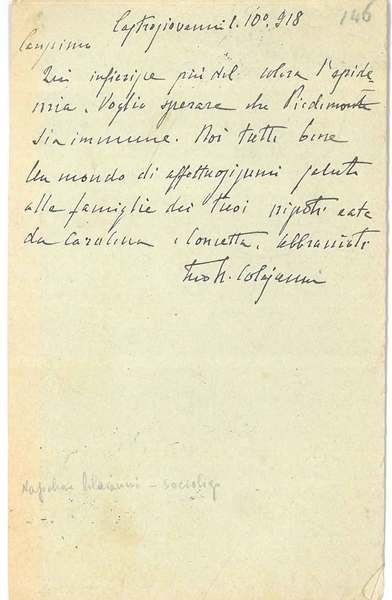 146
Castrogiovanni 1. 10e. 918
Carissimo
Qui infierisce più del colera l'epide
mia. Voglio sperare che Piedimonte
sia immune. Noi tutti bene
Un mondo di affettuosissimi saluti
alle famiglie dei tuoi nipoti
da Carolina e Concetta. Abbracciati
tuo N. Colajanni
Napoleone Colajanni - sociologo